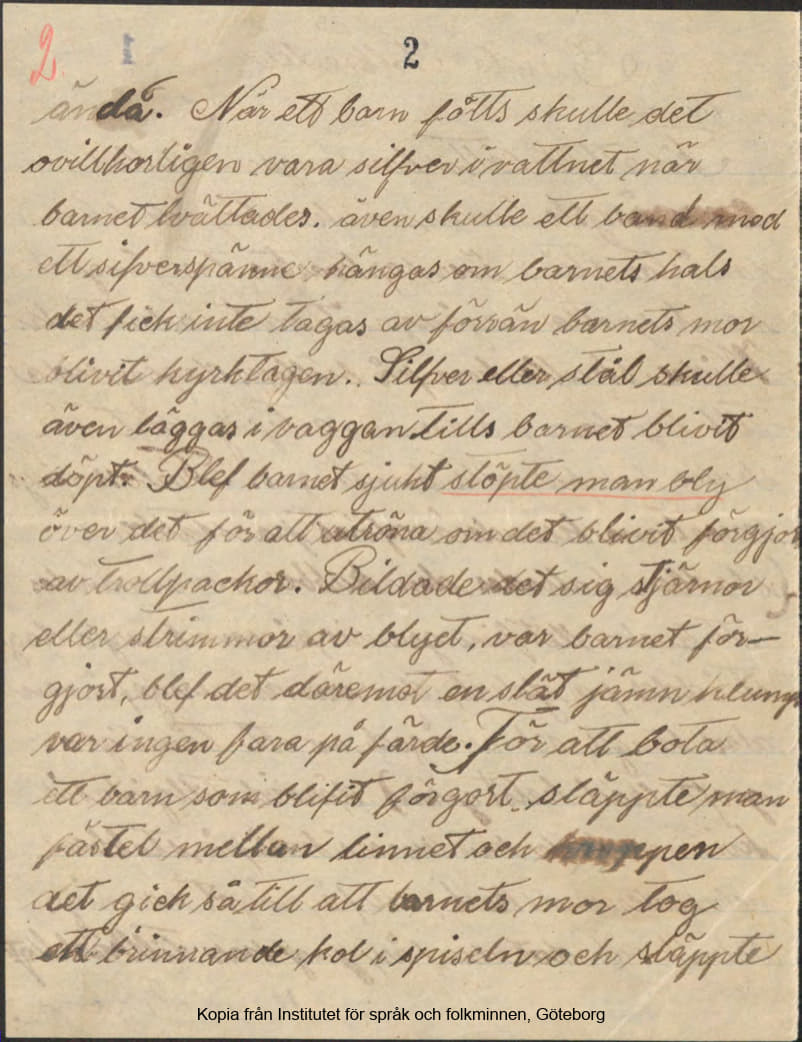 2 2
ändå. När ett barn fötts skulle det
ovillkorligen vara silfver i vattnet när
barnet tvättades. även skulle ett band med
ett sifverspänne hängas om barnets hals
det fick inte tagas av förrän barnets mor
blivit kyrktagen. Silfver eller stål skulle
även läggas i vaggan tills barnet blivit
döpt. Blef barnet sjukt stöpte man bly
över det för att utröna om det blivit förgjor
av trollpackor. Bildade det sig stjärnor
eller strimmor av blyet, var barnet för-
gjort, blef det däremot en slät jämn klump
var ingen fara på färde. För att bota
ett barn som blifit förgort släppte man
fästel mellan linnet och kroppen
det gick så till att barnets mor tog
ett brinnande kol i spiseln och släppte
Kopia från Institutet för språk och folkminnen, Göteborg